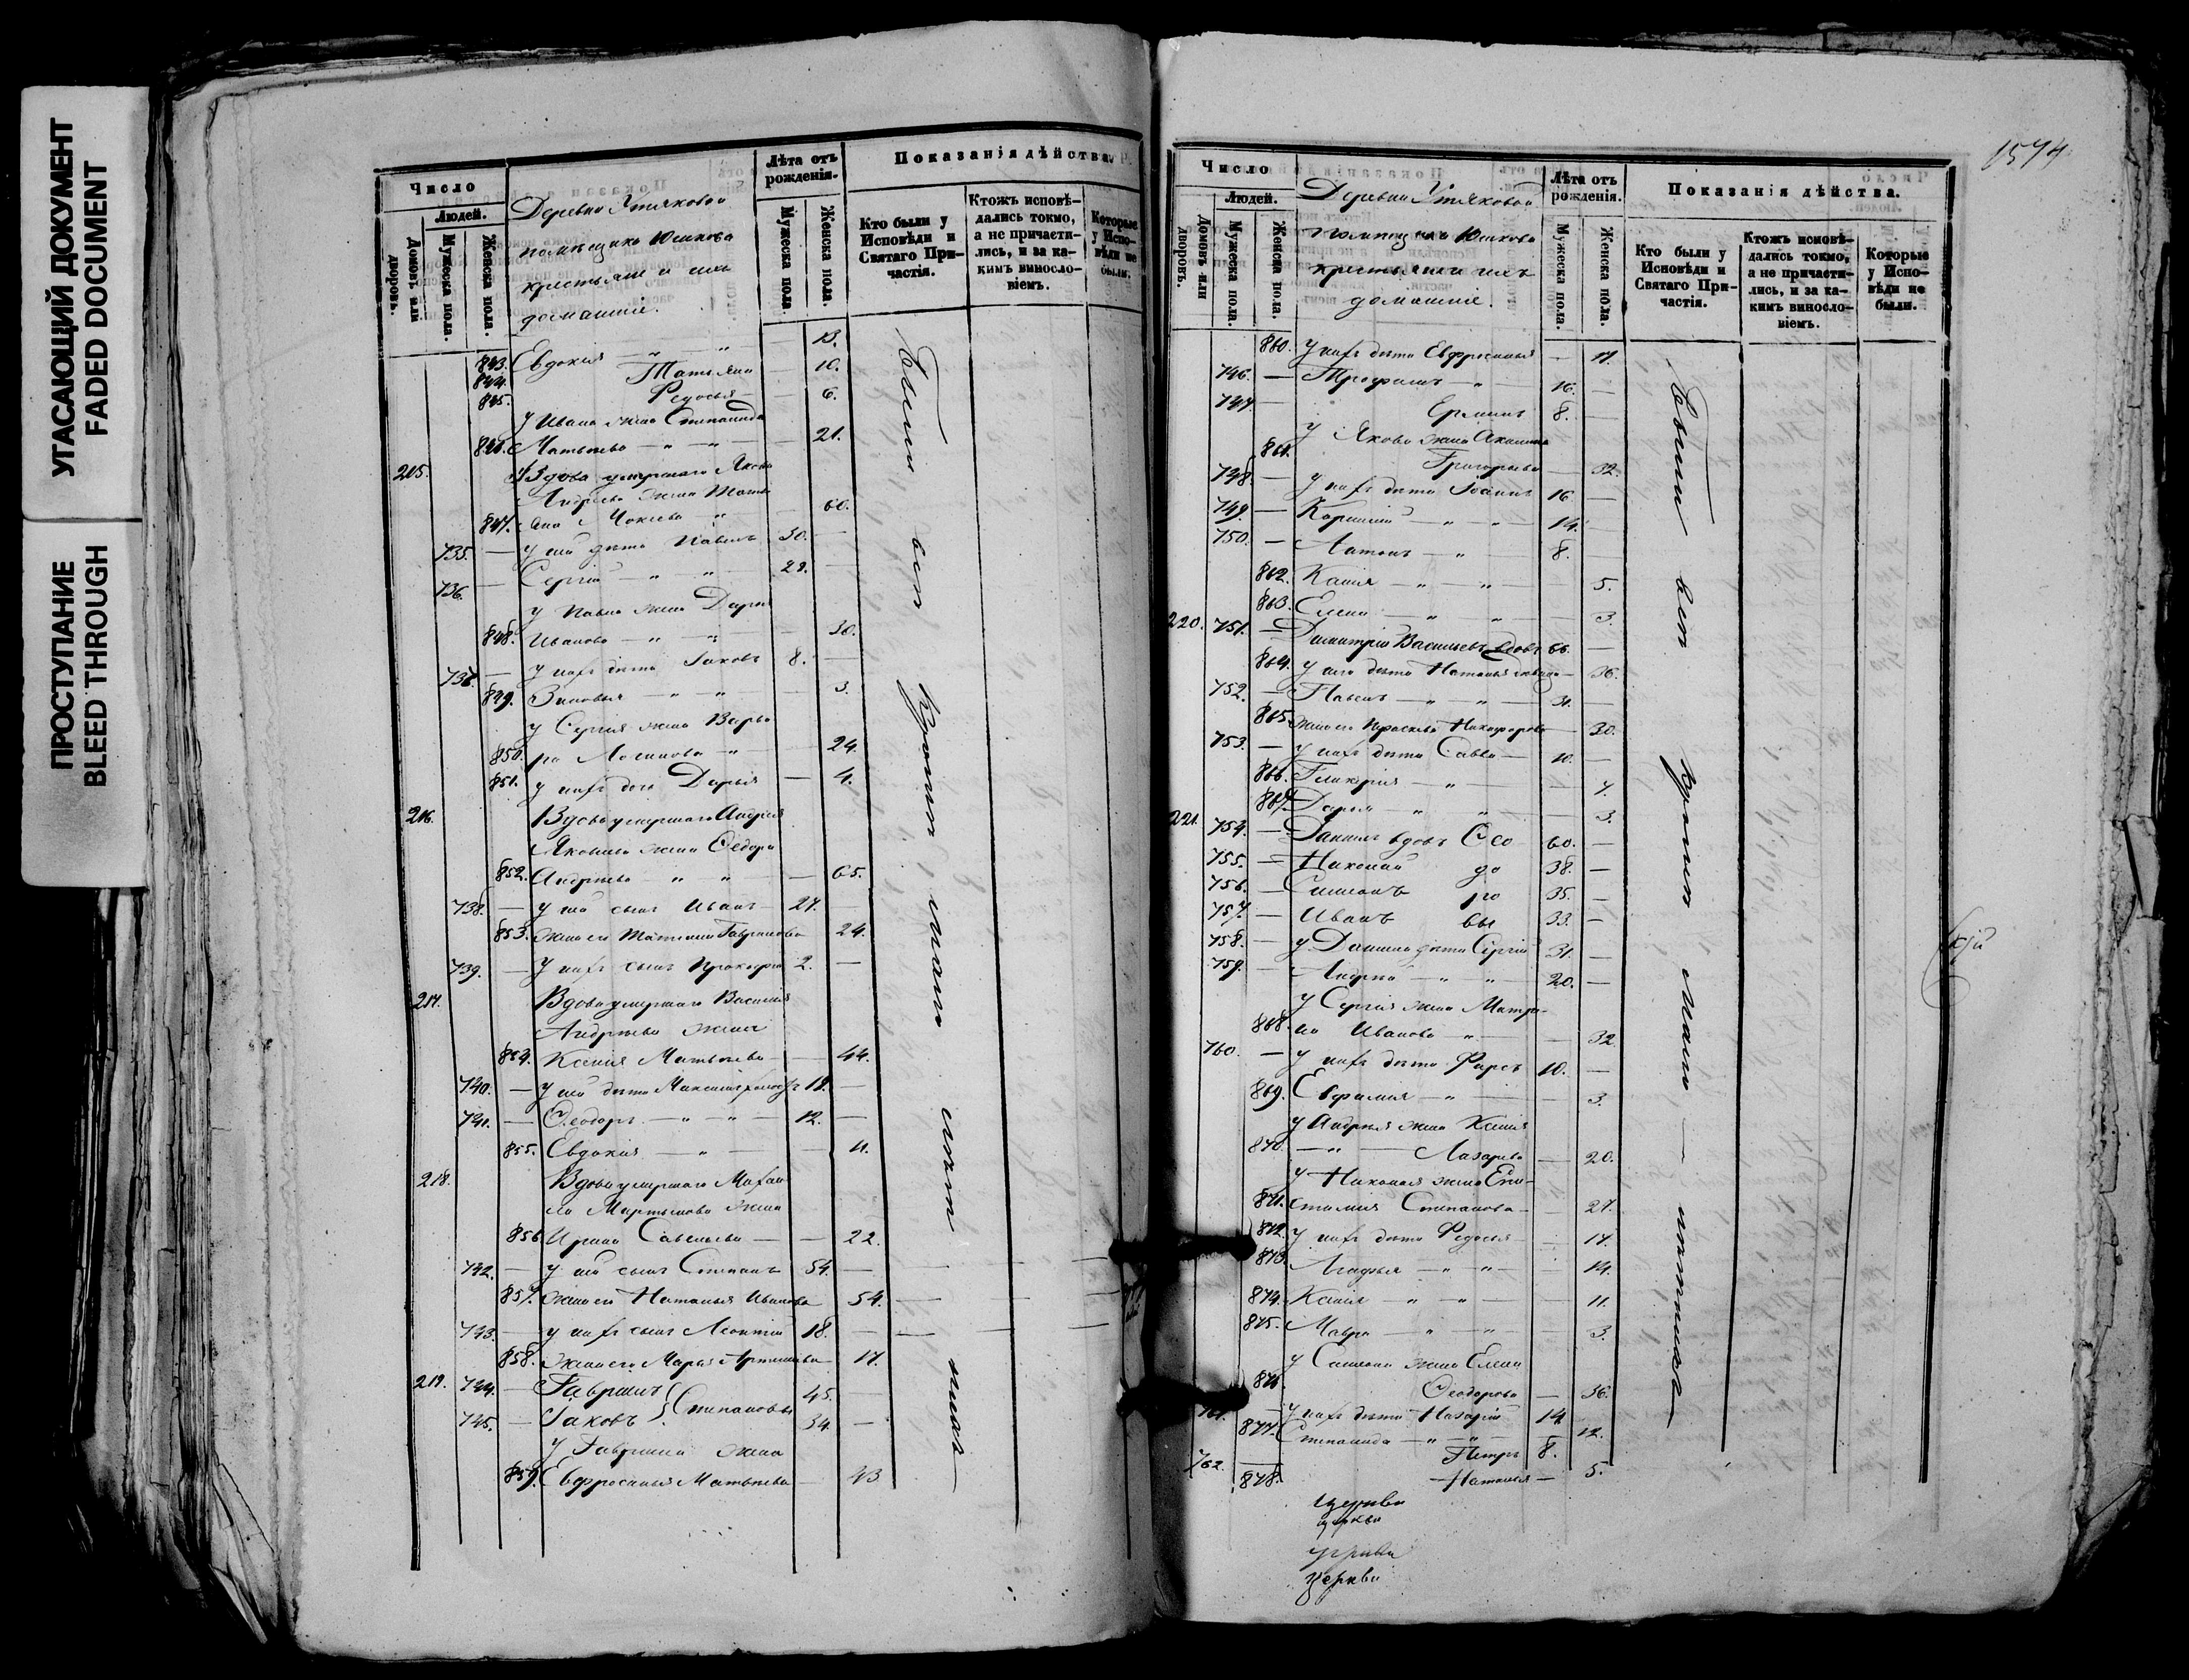 УГАСАЮЩИЙ ДОКУМЕНТ
FADED DOCUMENT
ПРОСТУПАНИЕ
BLEED THROUGH
Число
Людей.
Домовъ или дворовъ.
Мужеска пола.
Женска пола.
Деревни
помѣщика Юшкова
крестьяне и ихъ
домашніе.
Лѣта отъ рожденія.
Мужеска пола
Женска пола.
Показанія дѣйства.
Кто были у Исповѣди и Святаго При-частія.
Ктожъ исповѣ-дались токмо, а не причасти-лись, и за ка-кимъ винословіемъ.
Которые у Испо-вѣди не были.
843. Евдокия — " " — 13.
844. Татьяна — 10.
845. Федосья — 6.
У Ивана жена Степанида
846. Матвѣева — " — " — 21.
215. Вдова умершаго Якова
Андреева жена Татья
847. на " — 60.
735. — у ней дѣти Павелъ 30. —
736. — Сергій — " — " 28. —
у Павла жена Дарья
848. Иванова — " — " — 30.
737. — у нихъ дѣти Іаковъ 8. —
849. Зиновья — " — " — 3.
у Сергія жена Варва
850. ра Логинова — " — 24.
851. у нихъ дочь Дарья — 4.
216. Вдова умершаго Андрея
Яковлева жена Ѳедора
852. Андреева — " " — 65.
738. — у ней сынъ Иванъ 27. —
853. жена его Татьяна Гаврилова 24.
739. — у нихъ сынъ Прокофій 2. —
217. Вдова умершаго Василія
Андреева жена
854. Ксения Матвѣева — 44.
740. — у ней дѣти Максимъ холостъ 18. —
741. — Ѳеодоръ — " — " — 12. —
855. Евдокия — " — 11.
218. Вдова умершаго Михаи
ла Мартынова жена
856. Ирина Савельева — 22.
742. — у ней сынъ Степанъ 54. —
857. жена его Наталья Иванова 54. —
743. — у нихъ сынъ Леонтій 18. —
858. жена его Марья Артемьева 17.
219. 744. — Гаврилъ } Степановы 45. —
745. — Іаковъ 34. —
у Гаврила жена
859. Евфросинья Матвѣева — 43
Были вси кромѣ мало — лѣтныхъ —
1574
Число
Людей.
Домовъ или дворовъ.
Мужеска пола.
Женска пола.
Деревни
помѣщика Юшкова
крестьяне и ихъ
домашніе.
Лѣта отъ рожденія.
Мужеска пола.
Женска пола.
Показанія дѣйства.
Кто были у Исповѣди и Святаго При-частія.
Ктожъ исповѣ-дались токмо, а не причасти-лись, и за ка-кимъ винословіемъ.
Которые у Испо-вѣди не были.
860. У нихъ дѣти Евфросинья — 17.
746. — Трофимъ — " — 16. —
747. — Ермилъ 8. —
у Якова жена Акилина
861. Григорьева — 32.
748. — у нихъ дѣти Іоаннъ 16. —
749. — Корнилій — " — " — 14. —
750. — Антонъ — " — 8. —
862. Ксения — " — " — 5.
863. Елена — " — " — 3.
220. 751. — Димитрій Васильевъ вдовъ 66. —
864. у него дѣти Наталья — 36.
752. — Павелъ — " — " — 31. —
865. жена его Прасковья Никифорова — 30.
753. — у нихъ дѣти Савва — 10. —
866. Гликерия — " — 7.
867. Дарья — " — " — 3.
221. 754. — Даниилъ вдовъ Ѳео 60. —
755. — Николай до 38. —
756. — Симеонъ ро 35. —
757. — Иванъ вы 33. —
758. — у Даниила дѣти Сергій 31. —
759. — Андрей — " — " 20. —
у Сергія жена Матре-
868. на Иванова — " — 32
760. — у нихъ дѣти Фирсъ 10. —
869. Евфимия — " — 3.
у Андрея жена Ксения
870. — " — Лазарева — 20.
у Николая жена Епи-
871. стимия Степанова — 27.
872. у нихъ дѣти Федосья — 17.
873. Агафья — " — " — 14.
874. Ксения " — " — 11.
875. Мавра — " — " — 3.
у Симеона жена Елена
876. Ѳеодорова — 36.
761. — у нихъ дѣти Назарій 14
877. Степанида — " — " — 12.
762. Петръ 8.
878. Наталья — 5.
Были вси кромѣ мало — лѣтныхъ —
церкви
церкви
церкви
церкви